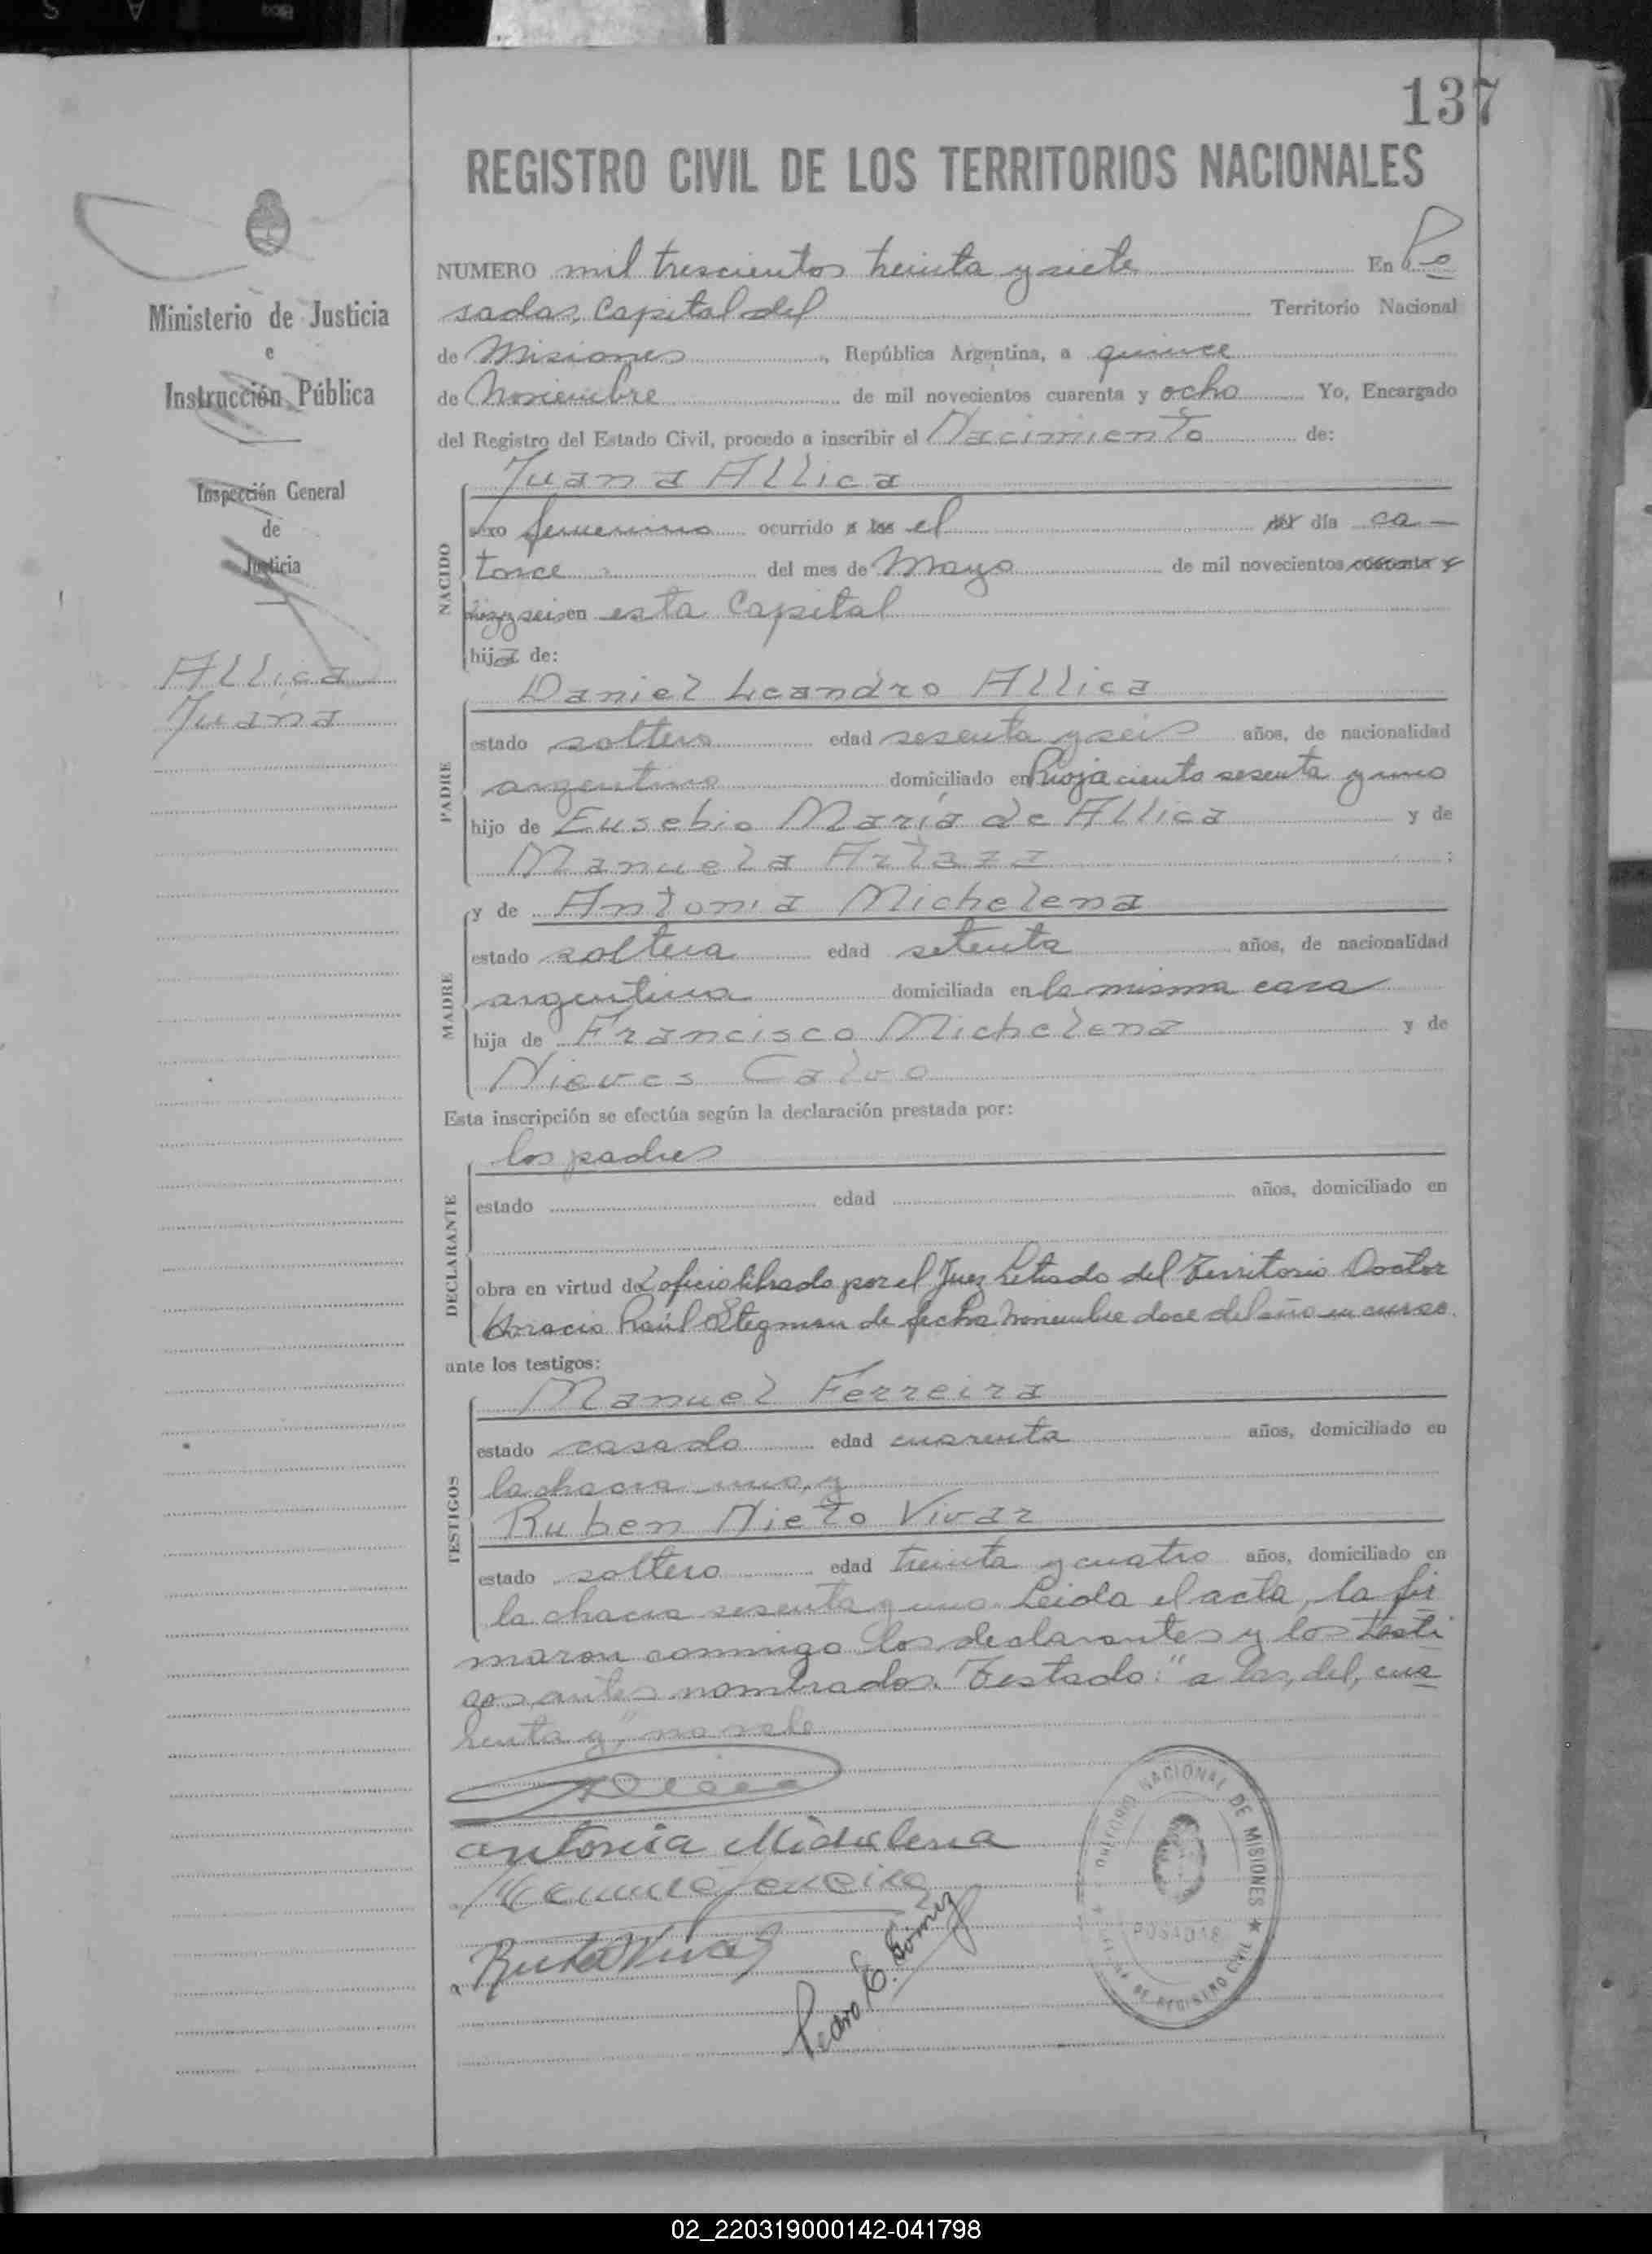 137
REGISTRO CIVIL DE LOS TERRITORIOS NACIONALES
Ministerio de Justicia
e
Instrucción Pública
Inspección General
de
Justicia
Allica
Juana
NUMERO mil trescientos treinta y siete En Po
sadas, Capital del Territorio Nacional
de Misiones, República Argentina, a quince
de Noviembre de mil novecientos cuarenta y ocho Yo, Encargado
del Registro del Estado Civil, procedo a inscribir el Nacimiento de:
NACIDO
Juana Allica
sexo femenino ocurrido a las el del día ca-
torce del mes de Mayo de mil novecientos cuarenta y
diez y seis en esta Capital
hija de:
PADRE
Daniel Leandro Allica
estado soltero edad sesenta y seis años, de nacionalidad
argentino domiciliado en Rioja ciento sesenta y uno
hijo de Eusebio María de Allica y de
Manuela Artaza;
MADRE
y de Antonia Michelena
estado soltera edad setenta años, de nacionalidad
argentina domiciliada en la misma casa
hija de Francisco Michelena y de
Nieves Calvo
Esta inscripción se efectúa según la declaración prestada por:
DECLARANTE
los padres
estado edad años, domiciliado en
obra en virtud del oficio librado por el Juez Letrado del Territorio Doctor
Horacio Raúl Stegman de fecha noviembre doce del año en curso.
ante los testigos:
TESTIGOS
Manuel Ferreira
estado casado edad cuarenta años, domiciliado en
la chacra uno, y
Ruben Nieto Vivar
estado soltero edad treinta y cuatro años, domiciliado en
la chacra sesenta y uno. Leida el acta, la fir
maron conmigo los declarantes y los testi
gos antes nombrados. Testado: "a las, del, cua
renta y", no vale
Allica
Antonia Michelena
Manuel Ferreira
Pedro E. Gómez
NACIONAL DE MISIONES ★
POSADAS
DE REGISTRO CIVIL
02_220319000142-041798